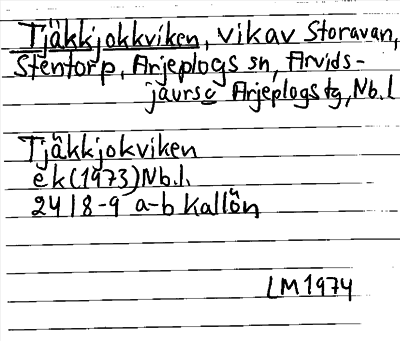 Tjäkkjokkviken, vik av Storavan,
Stentorp, Arjeplogs sn, Arvids-
jaurs c Arjeplogs tg, Nb.l
Tjäkkjokviken
ek (1973) Nb.l.
24 I 8-9 a-b Kallön
LM 1974